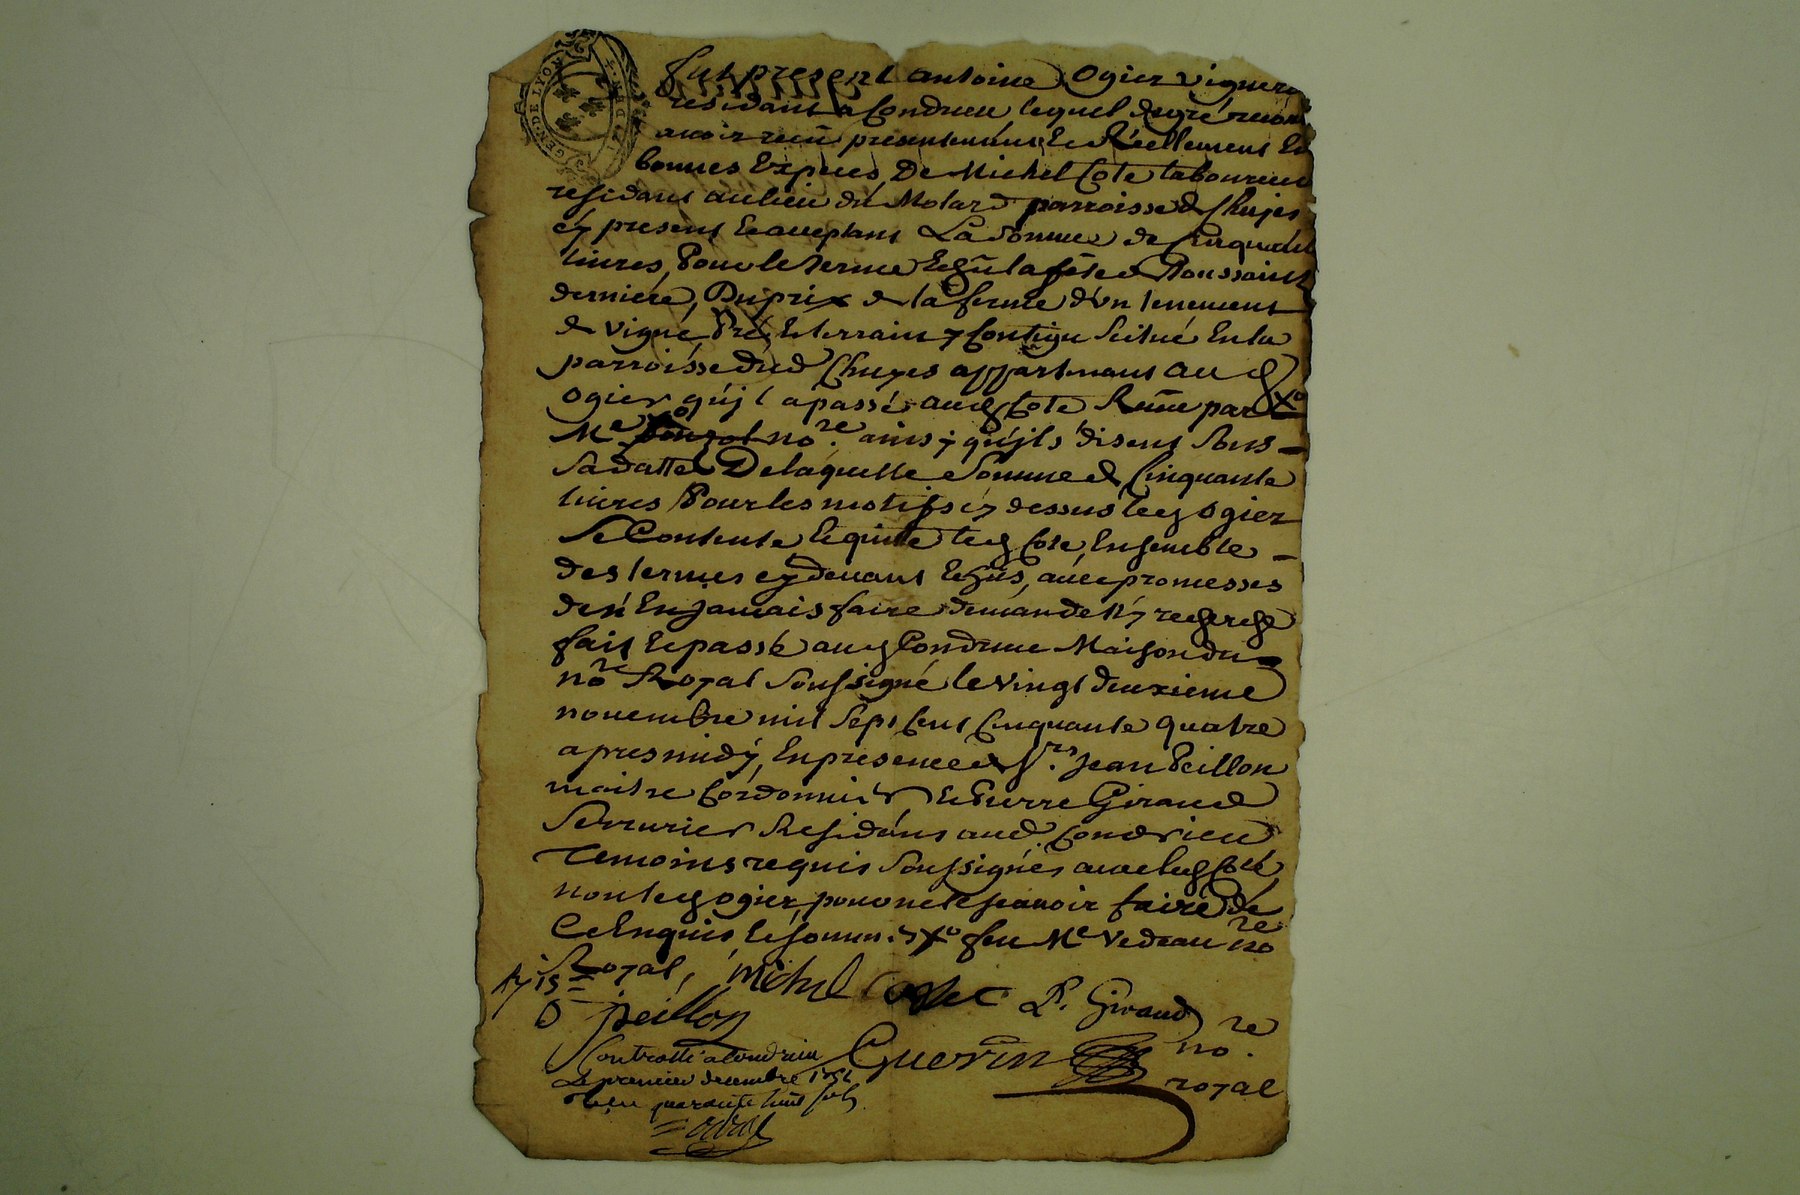 GEN. DE LYON
fut present antoine Ogier vigneron
residant a Condrieu lequel degré reconn
avoir reçu presentement Et Réellement En
bonnes Espèces De Michel Cote laboureur
residant au lieu du Molard parroisse de Chuyes
cy present Et acceptant La somme de Cinquante
livres, Pour le terme Echu la fête de Toussaint
derniere, Du prix de la ferme d'vn tenement
de vigne, Pré, Et terrain y Contigu Scitué En la
parroisse dud Chuyes appartenant au d
Ogier qu'il a passé aud Cote Reçue par Xo
Me no.re ainsy qu'jls disent Sous
Sa datte De laquelle Somme de Cinquante
livres Pour les motifs cy dessus led Ogier
Se Contente Et quitte led Cote, Ensemble
des termes cy devant Echus, avec promesses
de n'En jamais faire demande Ny recherche
fait Et passé aud Condrieu Maison du
nore Royal Soussigné le vingt deuxieme
novembre mil Sept Cent Cinquante quatre
apres midy, En presence de Srs. Jean Peillon
maitre Cordonnier, Et Pierre Giraud
Serrurier Residans aud. Condrieu
Temoins requis Soussignés avec led Coté,
non led ogier pour ne le sçavoir faire de
Ce Enquis, Et Sommé, Xo feu Me Vedeau nore
Royal, Michel P. Giraud
Peillon
Guerin nore.
royal
Controllé a Condrieu
Le premier decembre 1754
Reçu quarante huit sols